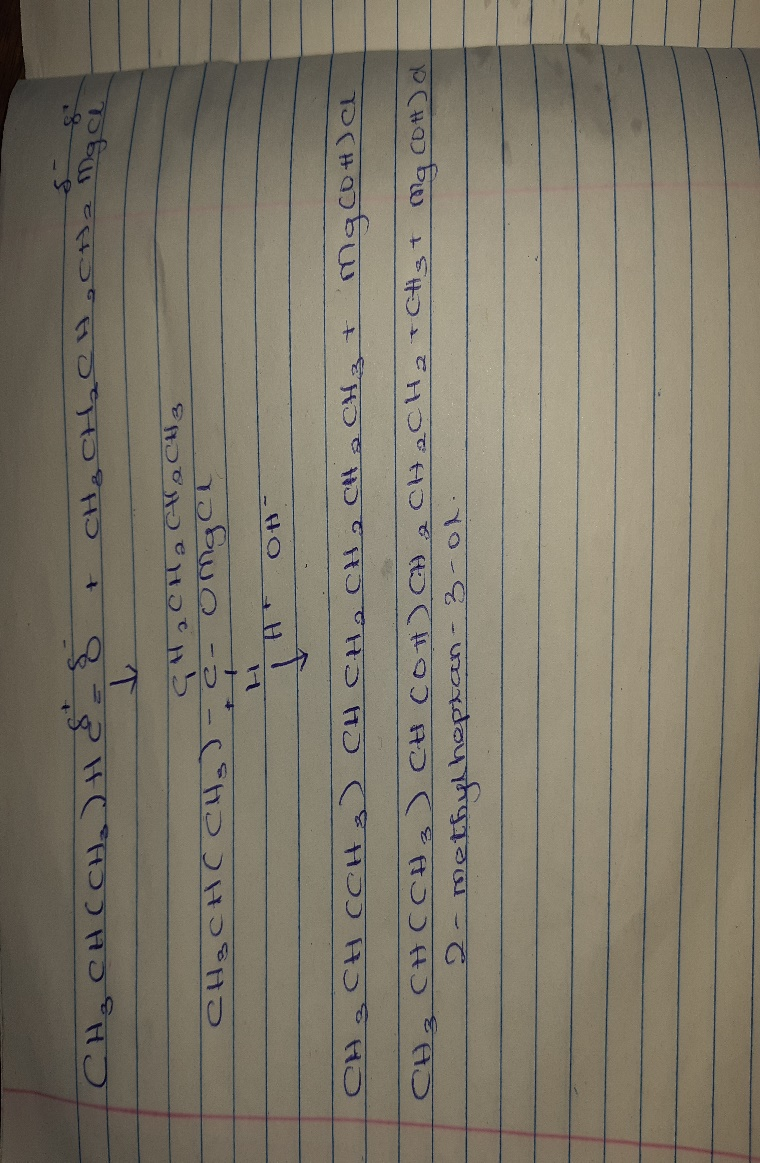 δ+ δ- δ- δ+
CH3 CH(CH3)HC=O + CH3CH2CH2CH2CH2MgCl
↓
CH2CH2CH2CH3
CH3CH(CH3)-C-OMgCl
+
H H+ OH-
↓
CH3CH(CH3)CHCH2CH2CH2CH2CH3 + Mg(OH)Cl
CH3 CH(CH3)CH(OH)CH2CH2CH2+CH3+ Mg(OH)Cl
2-methylheptan-3-ol.